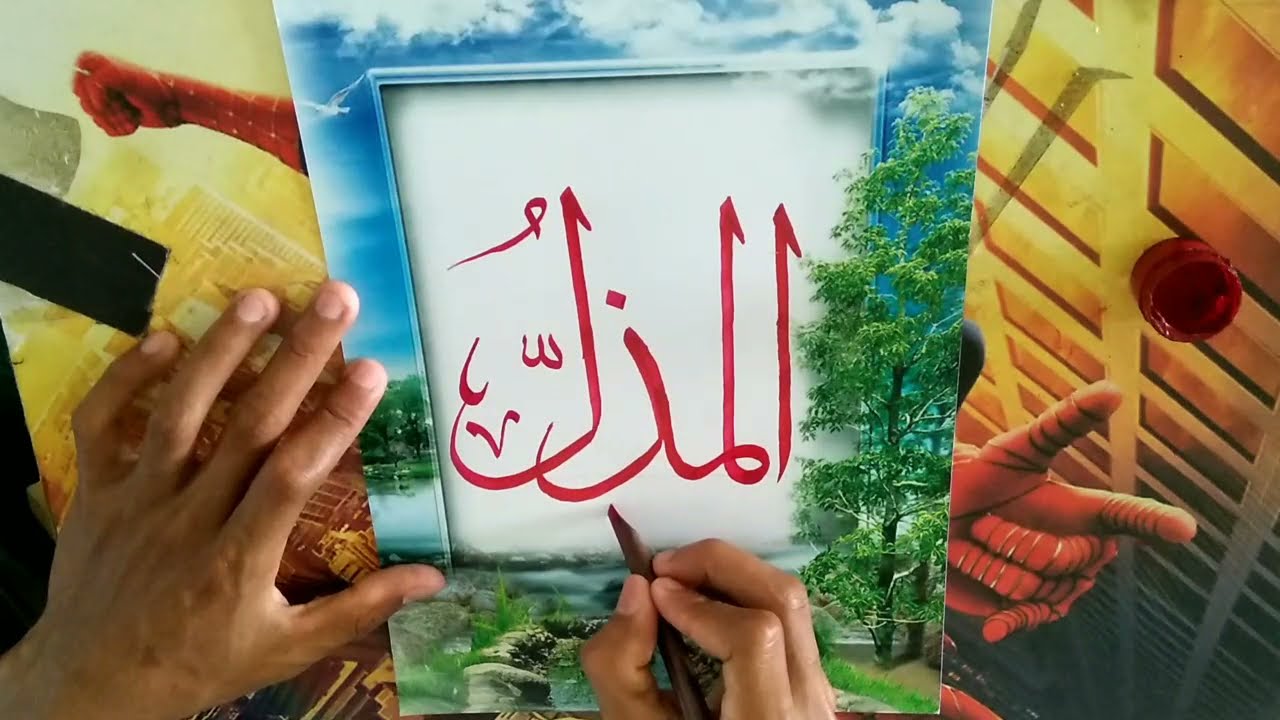 المذلُّ